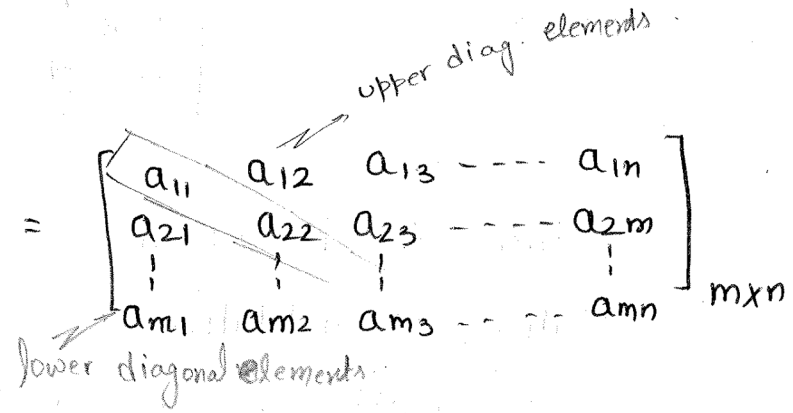 upper diag. elements.
= [ a11 a12 a13 ---- a1n
a21 a22 a23 ---- a2m
am1 am2 am3 ---- amn ] mxn
lower diagonal elements.